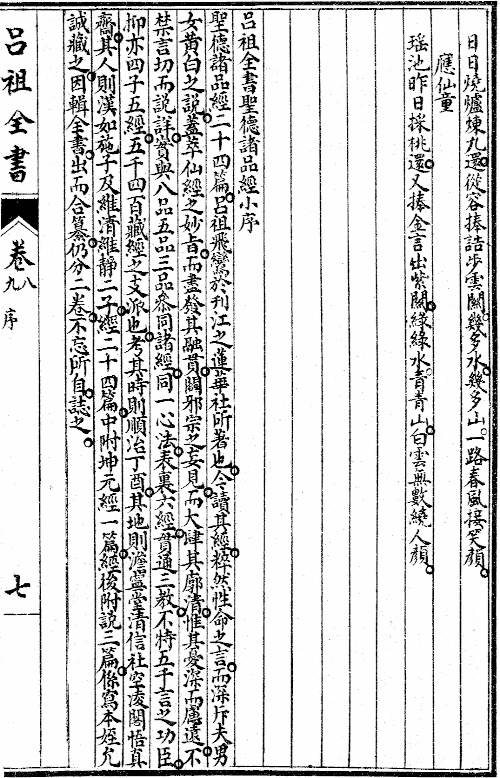 日日燒爐煉九還從容捧詰步雲關幾多水幾多山一路春風接笑顏
應仙童
瑤池昨日採桃還又捧金言出紫關綠綠水青青山白雲無數繞人顏
呂祖全書聖德諸品經小序
聖德諸品經二十四篇呂祖飛鸞於刋江之蓮華社所著也今讀其經粹然性命之言而深斥夫男
女黄白之說蓋萃仙經之妙旨而盡發其融貫闢邪宗之妄見而大肆其廓清惟其憂深而慮遠不
禁言切而說詳實與八品五品三品參同諸經同一心法表裏六經貫通三教不特五千言之功臣
抑亦四子五經五千四百藏經之支派也考其時則順治丁酉其地則澹靈堂清信社空凌閣悟真
齋其人則漢如施子及維清維靜二子經二十四篇中附坤元經一篇經後附說二篇係寫本姪允
誠藏之因輯全書出而合纂仍分二卷不忘所自誌之
呂祖全書
卷八九
序
七